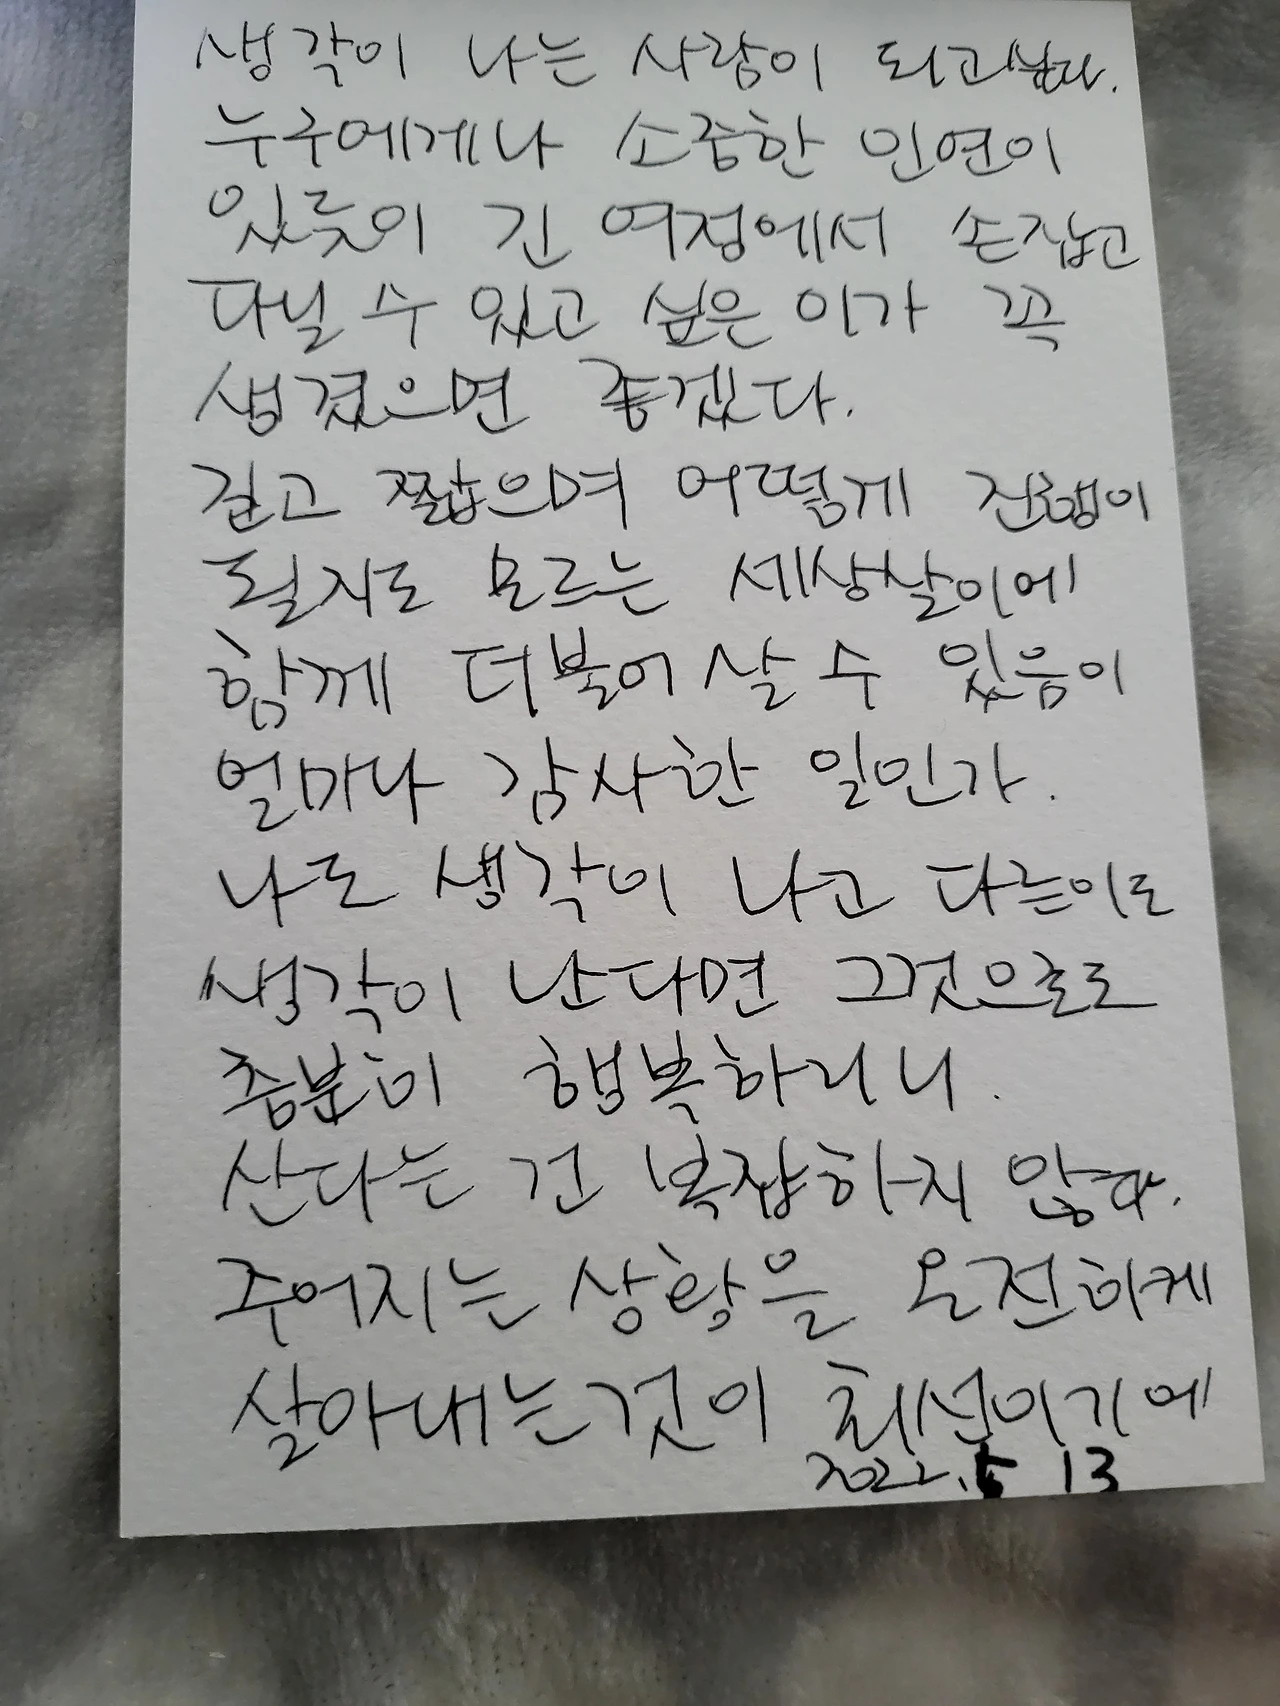 생각이 나는 사람이 되고싶다.
누구에게나 소중한 인연이
있듯이 긴 여정에서 손잡고
다닐 수 있고 싶은 이가 꼭
생겼으면 좋겠다.
길고 짧으며 어떻게 진행이
될지도 모르는 세상살이에
함께 더불어 살 수 있음이
얼마나 감사한 일인가.
나도 생각이 나고 다른이도
생각이 난다면 그것으로도
충분히 행복하리니.
산다는 건 복잡하지 않다.
주어지는 상황을 온전하게
살아내는것이 최선이기에
2022.5 13